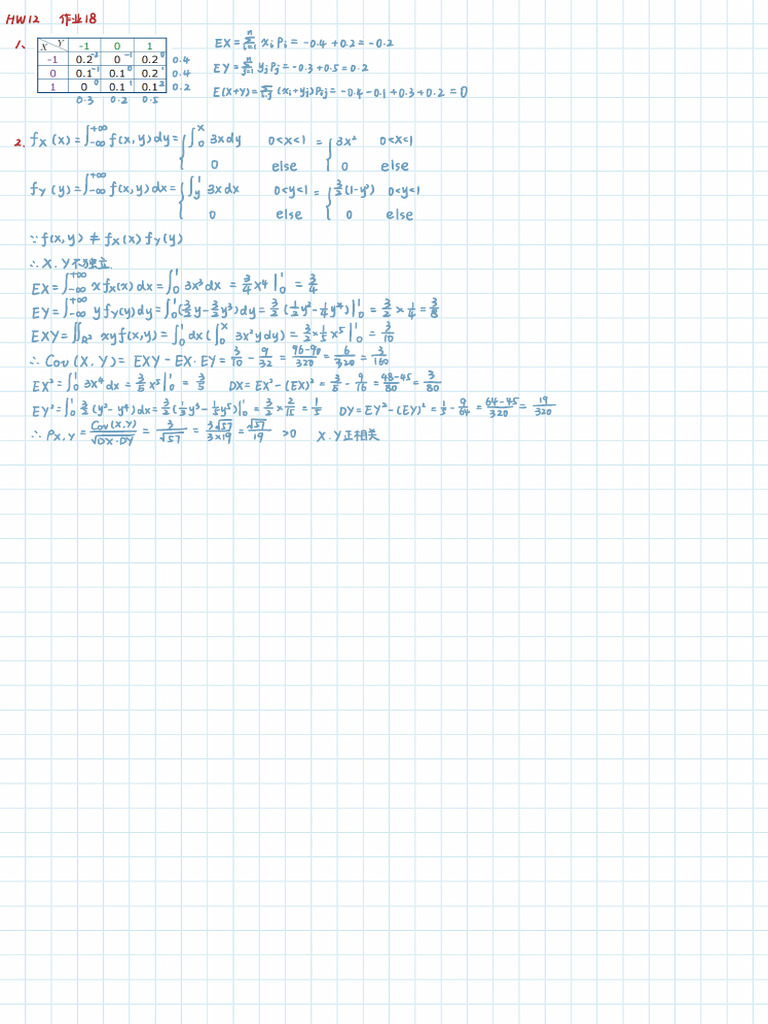 HW12 作业18
1、 X Y -1 0 1 EX = ∑ⁿᵢ₌₁ xᵢ pᵢ = -0.4 + 0.2 = -0.2
-1 0.2⁻² 0⁻¹ 0.2⁰ 0.4
0 0.1⁻¹ 0.1⁰ 0.2¹ 0.4 EY = ∑ⁿⱼ₌₁ yⱼ pⱼ = -0.3 + 0.5 = 0.2
1 0⁰ 0.1¹ 0.1² 0.2 E(X+Y) = ∑ᵢ,ⱼ (xᵢ+yⱼ)Pᵢⱼ = -0.4 - 0.1 + 0.3 + 0.2 = 0
0.3 0.2 0.5
2. fX(x) = ∫_{-∞}^{+∞} f(x,y)dy = { ∫_0^x 3xdy 0<x<1 = { 3x² 0<x<1
0 else 0 else
fY(y) = ∫_{-∞}^{+∞} f(x,y)dx = { ∫_y^1 3xdx 0<y<1 = { 3/2(1-y²) 0<y<1
0 else 0 else
∵ f(x,y) ≠ fX(x) fY(y)
∴ X.Y不独立.
EX = ∫_{-∞}^{+∞} x fX(x)dx = ∫_0^1 3x³dx = 3/4 x⁴ |_0^1 = 3/4
EY = ∫_{-∞}^{+∞} y fY(y)dy = ∫_0^1 (3/2 y - 3/2 y³)dy = 3/2 (1/2 y² - 1/4 y⁴)|_0^1 = 3/2 × 1/4 = 3/8
EXY = ∬_{R²} xyf(x,y) = ∫_0^1 dx(∫_0^x 3x²ydy) = 3/2 × 1/5 x⁵ |_0^1 = 3/10
∴ Cov(X,Y) = EXY - EX·EY = 3/10 - 9/32 = 96-90/320 = 6/320 = 3/160
EX² = ∫_0^1 3x⁴dx = 3/5 x⁵ |_0^1 = 3/5 DX = EX² - (EX)² = 3/5 - 9/16 = 48-45/80 = 3/80
EY² = ∫_0^1 3/2 (y² - y⁴)dx = 3/2 (1/3 y³ - 1/5 y⁵)|_0^1 = 3/2 × 2/15 = 1/5 DY = EY² - (EY)² = 1/5 - 9/64 = 64-45/320 = 19/320
∴ ρX,Y = Cov(X,Y)/√DX·DY = 3/√57 = 3√57/3×19 = √57/19 >0 X.Y正相关